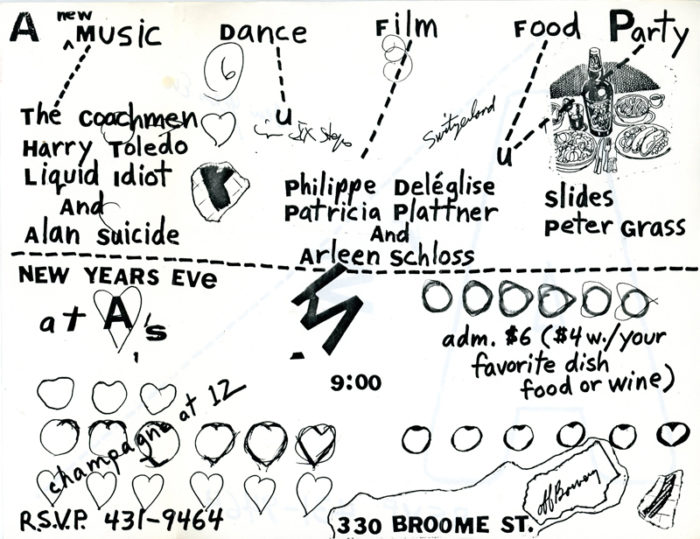 A new Music Dance Film Food Party
6
The Coachmen
Harry Toledo
Liquid Idiot
And
Alan Suicide
u
Six Steps
Switzerland
u
Philippe Deléglise
Patricia Plattner
And
Arleen Schloss
Slides
Peter Grass
NEW YEARS EVE
at A's
M.
9:00
adm. $6 ($4 w./your
favorite dish
food or wine)
champagne at 12
R.S.V.P. 431-9464
330 BROOME ST.
off Bowery